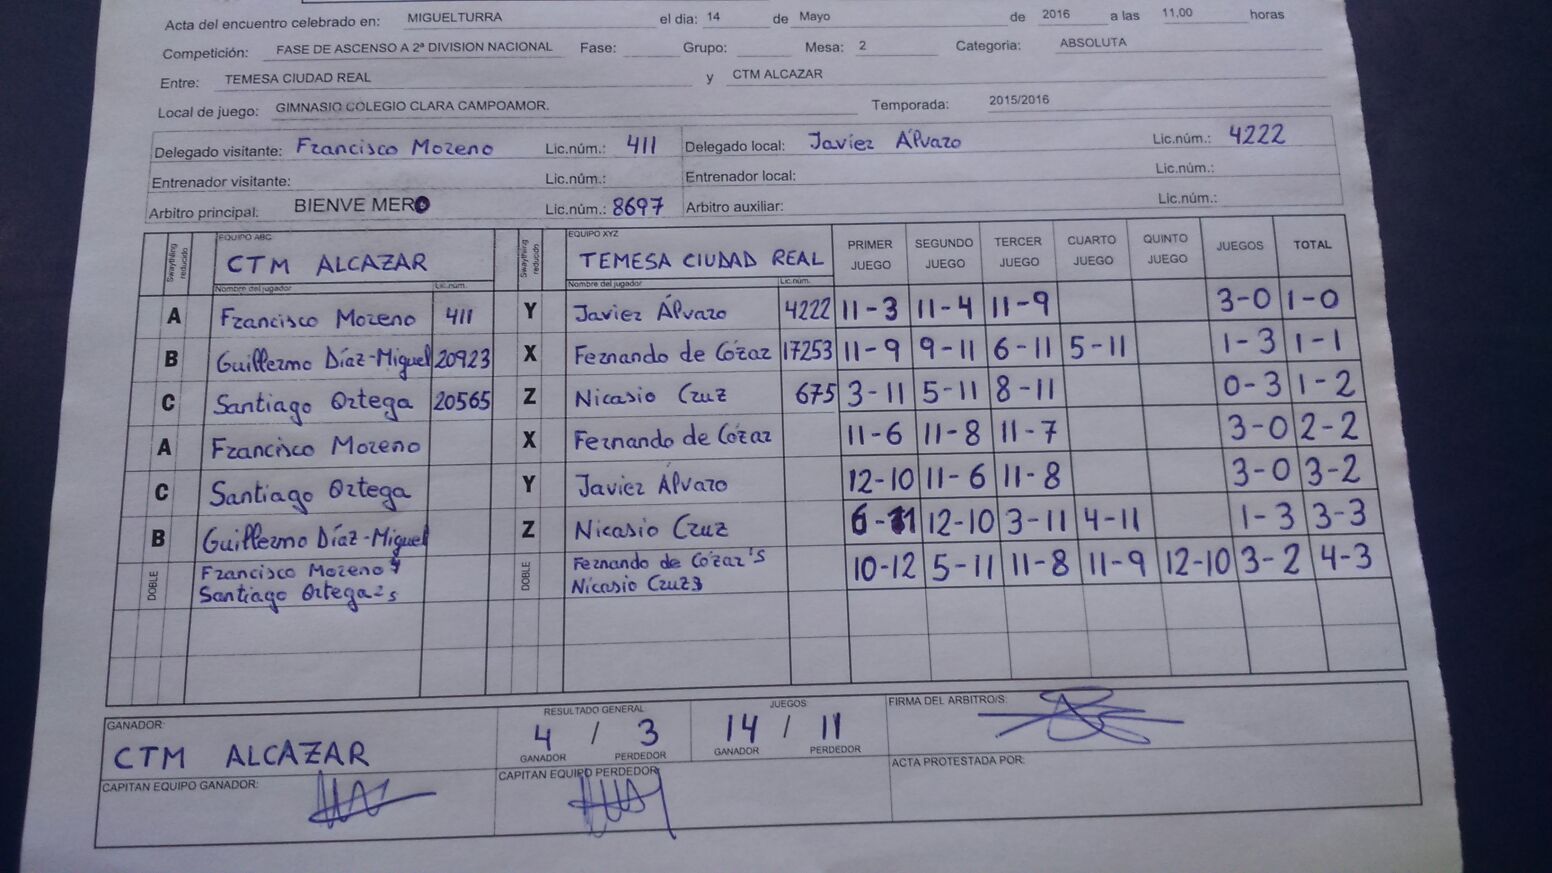 Acta del encuentro celebrado en: MIGUELTURRA el dia: 14 de Mayo de 2016 a las 11,00 horas
Competición: FASE DE ASCENSO A 2ª DIVISION NACIONAL Fase: Grupo: Mesa: 2 Categoria: ABSOLUTA
Entre: TEMESA CIUDAD REAL y CTM ALCAZAR
Local de juego: GIMNASIO COLEGIO CLARA CAMPOAMOR. Temporada: 2015/2016
Delegado visitante: Francisco Moreno Lic.núm.: 411 Delegado local: Javier Álvaro Lic.núm.: 4222
Entrenador visitante: Lic.núm.: Entrenador local: Lic.núm.:
Arbitro principal: BIENVE MERO Lic.núm.: 8697 Arbitro auxiliar: Lic.núm.:
Swaything reducido EQUIPO ABC CTM ALCAZAR Swaything reducido EQUIPO XYZ TEMESA CIUDAD REAL PRIMER JUEGO SEGUNDO JUEGO TERCER JUEGO CUARTO JUEGO QUINTO JUEGO JUEGOS TOTAL
Nombre del jugador Lic.núm. Nombre del jugador Lic.núm.
A Francisco Moreno 411 Y Javier Álvaro 4222 11-3 11-4 11-9 3-0 1-0
B Guillermo Díaz-Miguel 20923 X Fernando de Cózar 17253 11-9 9-11 6-11 5-11 1-3 1-1
C Santiago Ortega 20565 Z Nicasio Cruz 675 3-11 5-11 8-11 0-3 1-2
A Francisco Moreno X Fernando de Cózar 11-6 11-8 11-7 3-0 2-2
C Santiago Ortega Y Javier Álvaro 12-10 11-6 11-8 3-0 3-2
B Guillermo Díaz-Miguel Z Nicasio Cruz 6-11 12-10 3-11 4-11 1-3 3-3
DOBLE Francisco Moreno Santiago Ortega DOBLE Fernando de Cózar Nicasio Cruz 10-12 5-11 11-8 11-9 12-10 3-2 4-3
GANADOR: CTM ALCAZAR RESULTADO GENERAL 4 / 3 GANADOR PERDEDOR JUEGOS 14 / 11 GANADOR PERDEDOR FIRMA DEL ARBITRO/S:
CAPITAN EQUIPO GANADOR: CAPITAN EQUIPO PERDEDOR ACTA PROTESTADA POR: